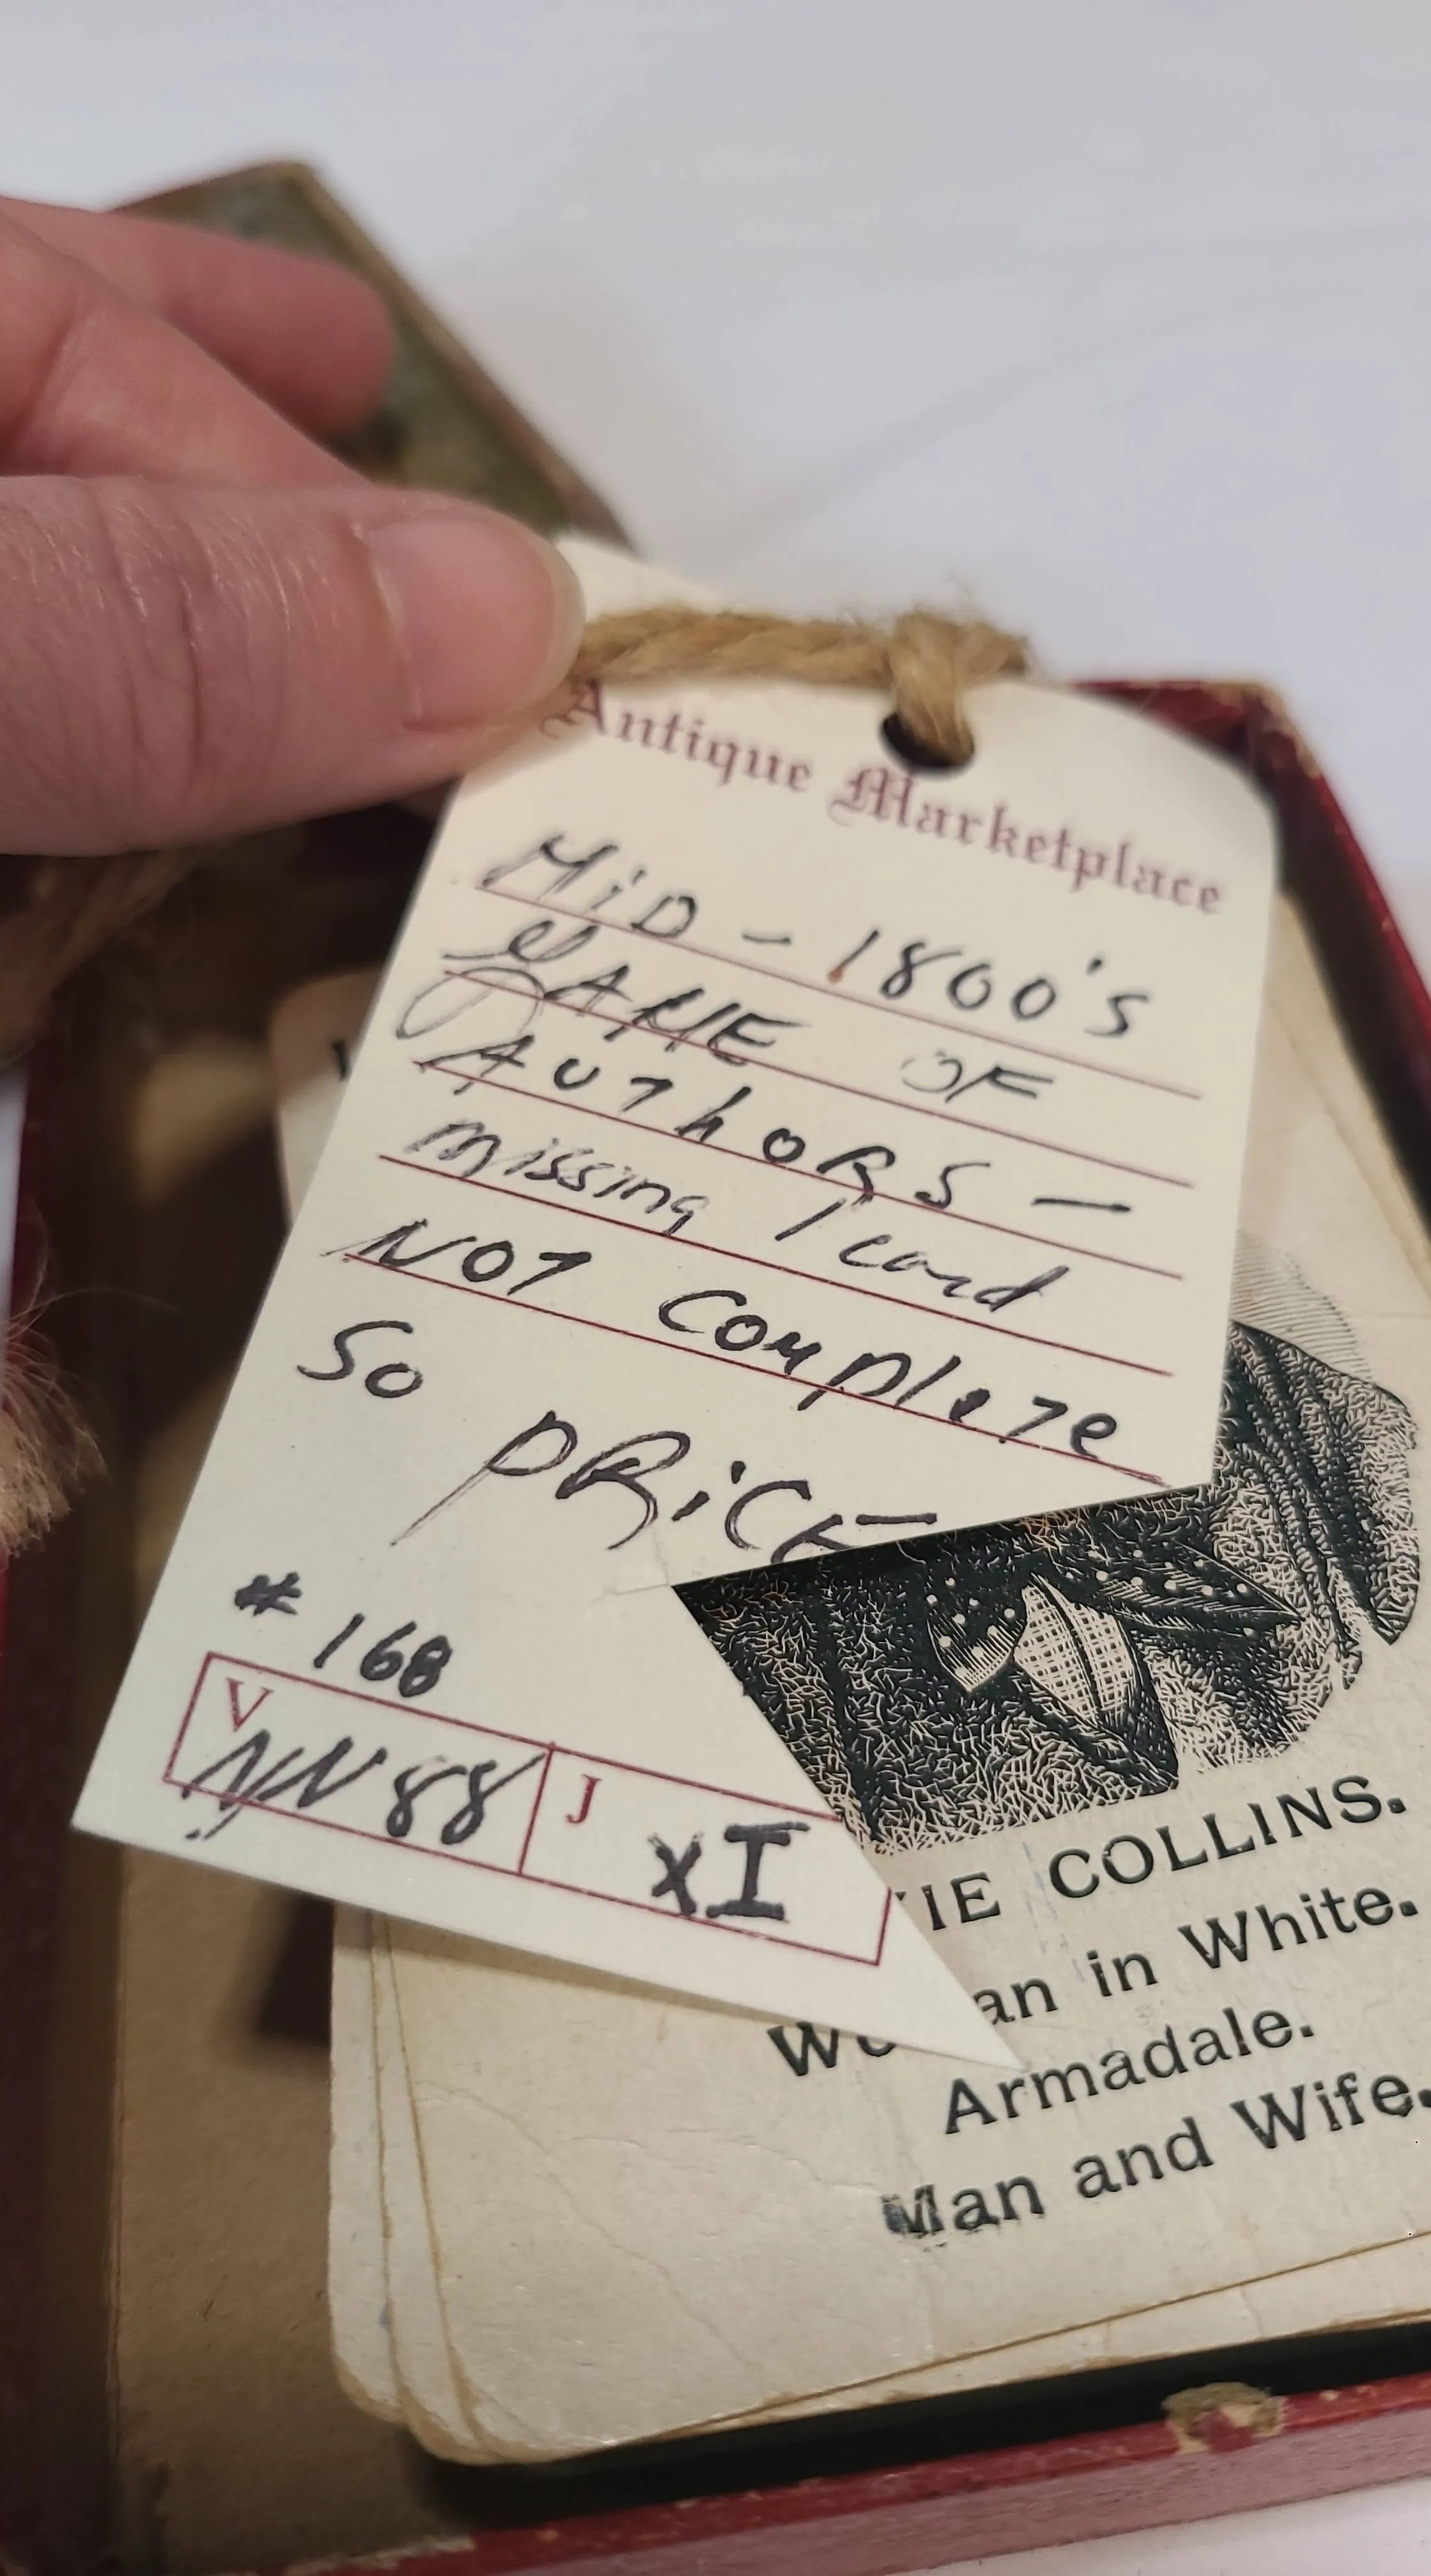 Antique Marketplace
MiD - 1800's
GAME OF
AUThORS -
missing 1 card
NOT complete
So PRiCE
# 168
V
NN88
J
XI
IE COLLINS.
an in White.
Armadale.
Man and Wife.